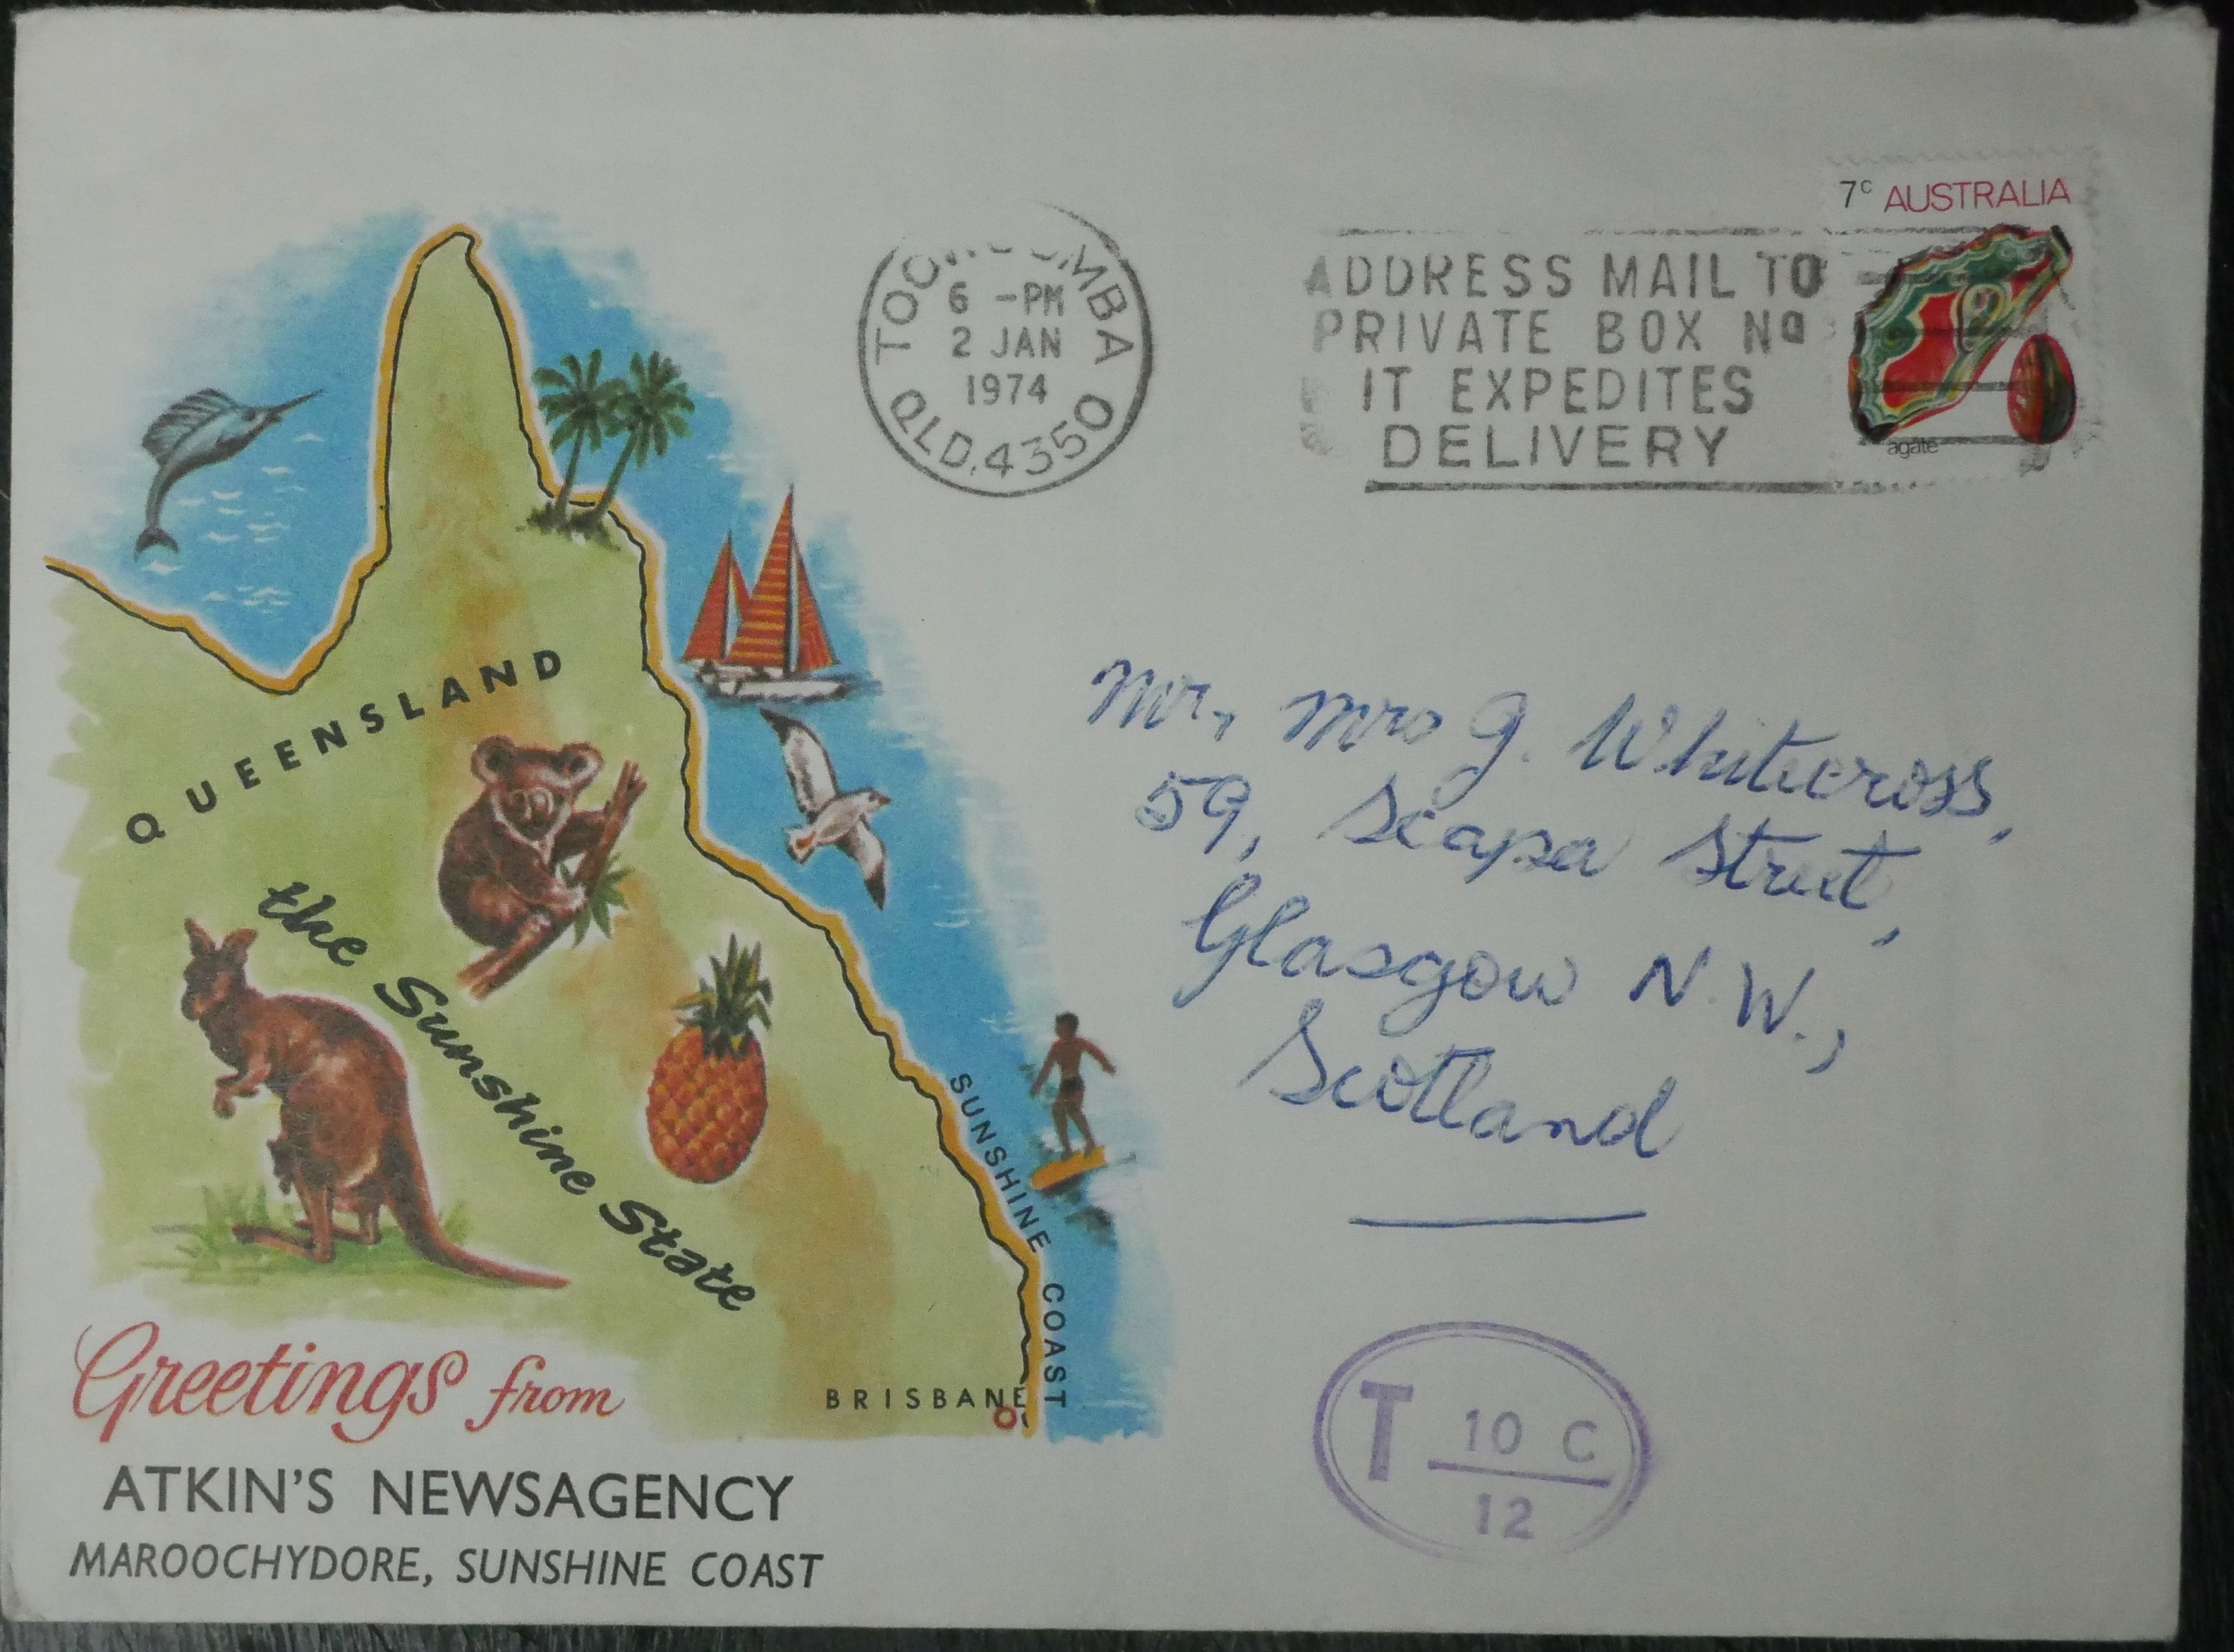 TOOWOOMBA
6 -PM
2 JAN
1974
QLD. 4350
ADDRESS MAIL TO
PRIVATE BOX Nº
IT EXPEDITES
DELIVERY
7c AUSTRALIA
agate
QUEENSLAND
the Sunshine State
SUNSHINE COAST
BRISBANE
Greetings from
ATKIN'S NEWSAGENCY
MAROOCHYDORE, SUNSHINE COAST
Mr, Mrs G. Whitecross,
59, Scapa Street,
Glasgow N.W.,
Scotland
T 10 C
12